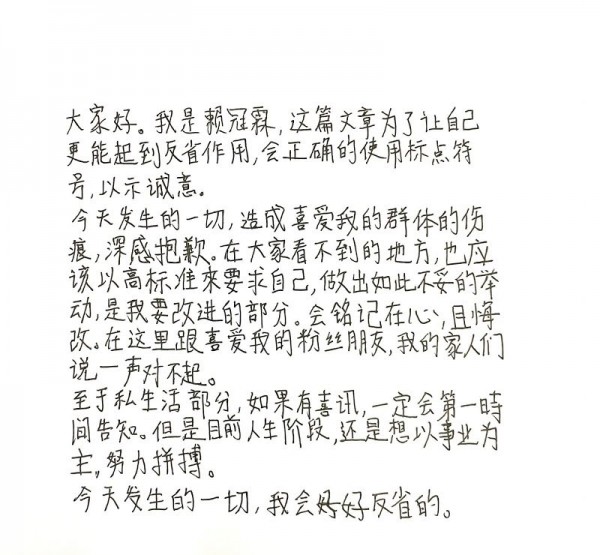 大家好。我是赖冠霖，这篇文章为了让自己
更能起到反省作用，会正确的使用标点符
号，以示诚意。
今天发生的一切，造成喜爱我的群体的伤
痕，深感抱歉。在大家看不到的地方，也应
该以高标准来要求自己，做出如此不妥的举
动，是我要改进的部分。会铭记在心，且悔
改。在这里跟喜爱我的粉丝朋友，我的家人们
说一声对不起。
至于私生活部分，如果有喜讯，一定会第一時
间告知。但是目前人生阶段，还是想以事业为
主，努力拼搏。
今天发生的一切，我会好好反省的。